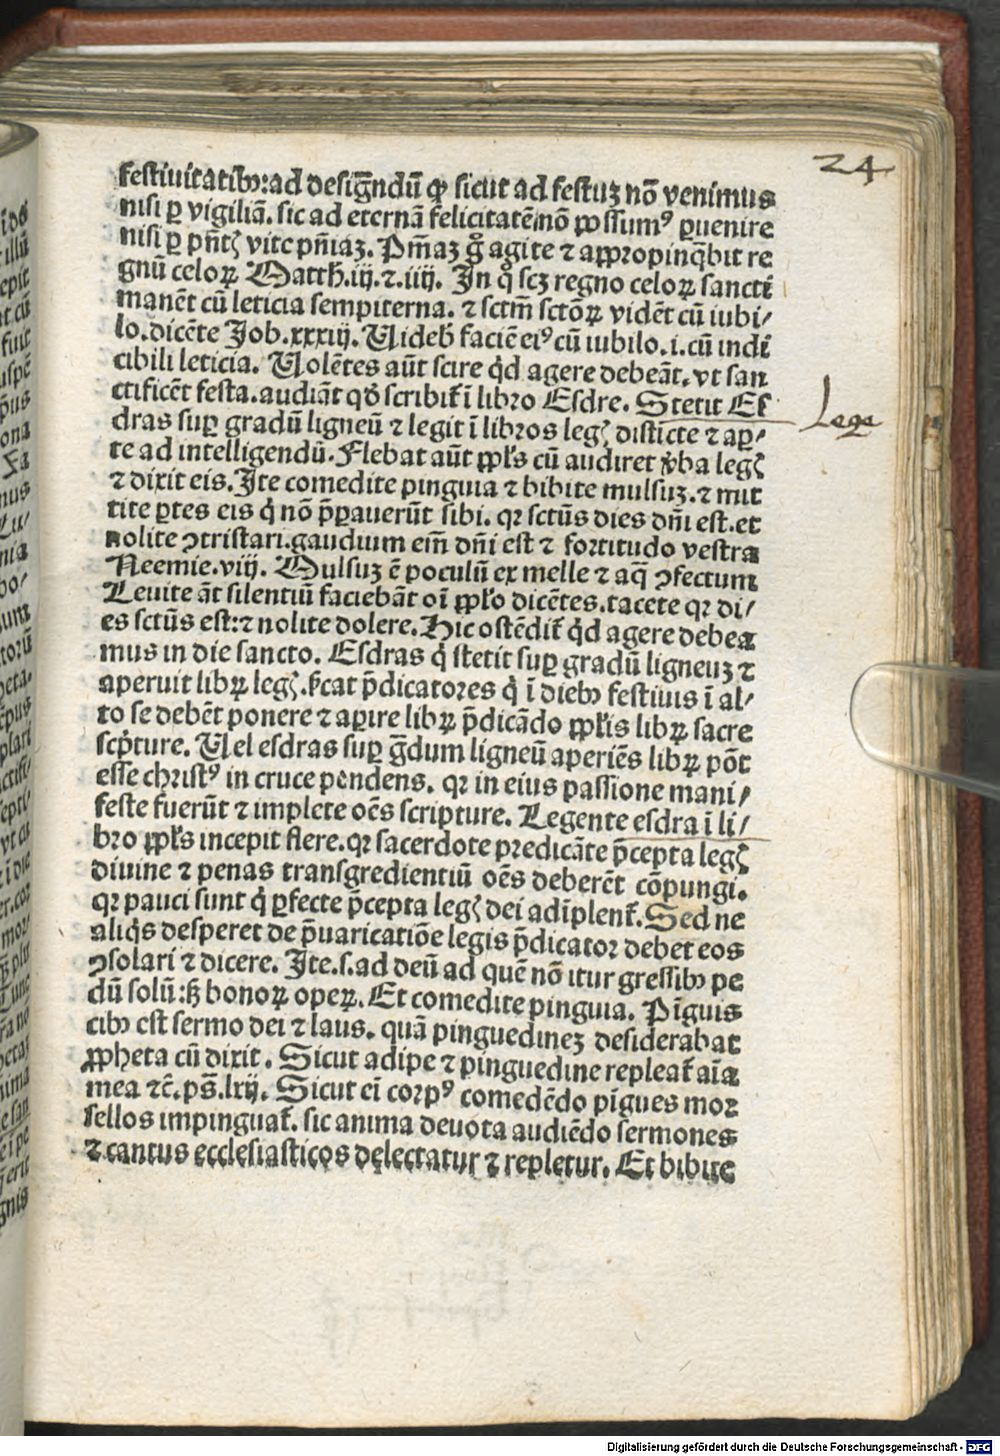 24
festiuitatibꝯ: ad desig̅ndū qꝫ sicut ad festuꝫ nō venimus
nisi ꝑ vigiliā. sic ad eternā felicitatē nō possumꝰ ꝑuenire
nisi ꝑ pn̄tꝭ vite pn̄iaꝫ. Pn̄iaꝫ gͦ agite ⁊ appropinqͣbit re
gnū celoꝝ Matth̄.iij.⁊.iiij. In qͦ scꝫ regno celoꝝ sancti
manēt cū leticia sempiterna. ⁊ sctm̄ sctōꝝ vidēt cū iubi⸗
lo. dicēte Job.xxxiij. Videb̄ faciē eiꝰ cū iubilo.i.cū indi
cibili leticia. Volētes aūt scire qͥd agere debeāt. vt san
ctificēt festa. audiāt qd̓ scribit̄ ī libro Esdre. Stetit Es
Lege
dras suꝑ gradū ligneū ⁊ legit ī libros legꝭ disticte ⁊ aꝑ⸗
te ad intelligendū. Flebat aūt ppl̓s cū audiret v̓ba legꝭ
⁊ dixit eis. Ite comedite pinguia ⁊ bibite mulsuꝫ. ⁊ mit
tite ꝑtes eis qͥ nō p̄ꝑauerūt sibi. qꝛ sctūs dies dn̄i est. et
nolite ꝯtristari. gaudium em̄ dn̄i est ⁊ fortitudo vestra
Neemie.viij. Mulsuꝫ ē poculū ex melle ⁊ aq̄ ꝯfectum
Leuite āt silentiū faciebāt oī ppl̓o dicētes. tacete qꝛ di⸗
es sctūs est: ⁊ nolite dolere. Hic ostēdit̄ qͥd agere debea
mus in die sancto. Esdras qͥ stetit suꝑ gradū ligneuꝫ ⁊
aperuit libꝝ legꝭ. s̓cat p̄dicatores qͥ ī diebꝯ festiuis ī al⸗
to se debēt ponere ⁊ aꝑire libꝝ p̄dicādo ppl̓is libꝝ sacre
scp̓ture. Vel esdras suꝑ gͣdum ligneū aperiēs libꝝ pōt
esse christꝰ in cruce pendens. qꝛ in eius passione mani⸗
feste fuerūt ⁊ implete oēs scripture. Legente esdra ī li⸗
bro ppl̓s incepit flere. qꝛ sacerdote predicāte p̄cepta legꝭ
diuine ⁊ penas transgredientiū oēs deberēt cōpungi.
qꝛ pauci sunt qͥ ꝑfecte p̄cepta legꝭ dei adīplent̄. Sed ne
aliqͥs desperet de p̄uaricatiōe legis p̄dicator debet eos
ꝯsolari ⁊ dicere. Ite.s.ad deū ad quē nō itur gressibꝯ pe
dū solū: sꝫ bonoꝝ opeꝝ. Et comedite pinguia. Pīguis
cibꝯ est sermo dei ⁊ laus. quā pinguedineꝫ desiderabat
ꝓpheta cū dixit. Sicut adipe ⁊ pinguedine repleat̄ aīa
mea ⁊c̄. ps̄.lxij. Sicut eī corpꝰ comedēdo pīgues mor
sellos impinguat̄. sic anima deuota audiēdo sermones
⁊ cantus ecclesiasticos delectatur ⁊ repletur. Et bibite
Digitalisierung gefördert durch die Deutsche Forschungsgemeinschaft - DFG